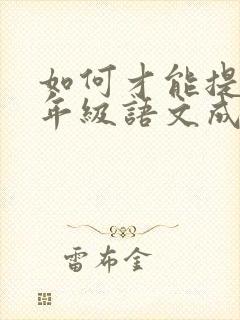 如何才能提
年級語文成
雷布金